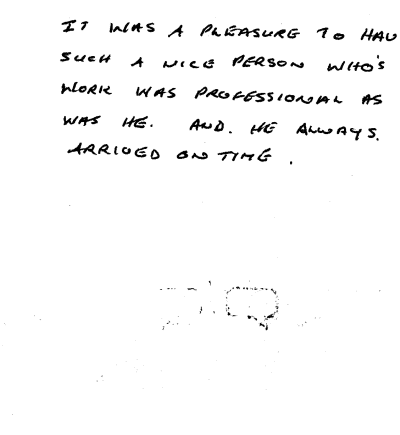 IT WAS A PLEASURE TO HAV
SUCH A NICE PERSON WHO'S
WORK WAS PROFESSIONAL AS
WAS HE. AND. HE ALWAYS.
ARRIVED ON TIME.